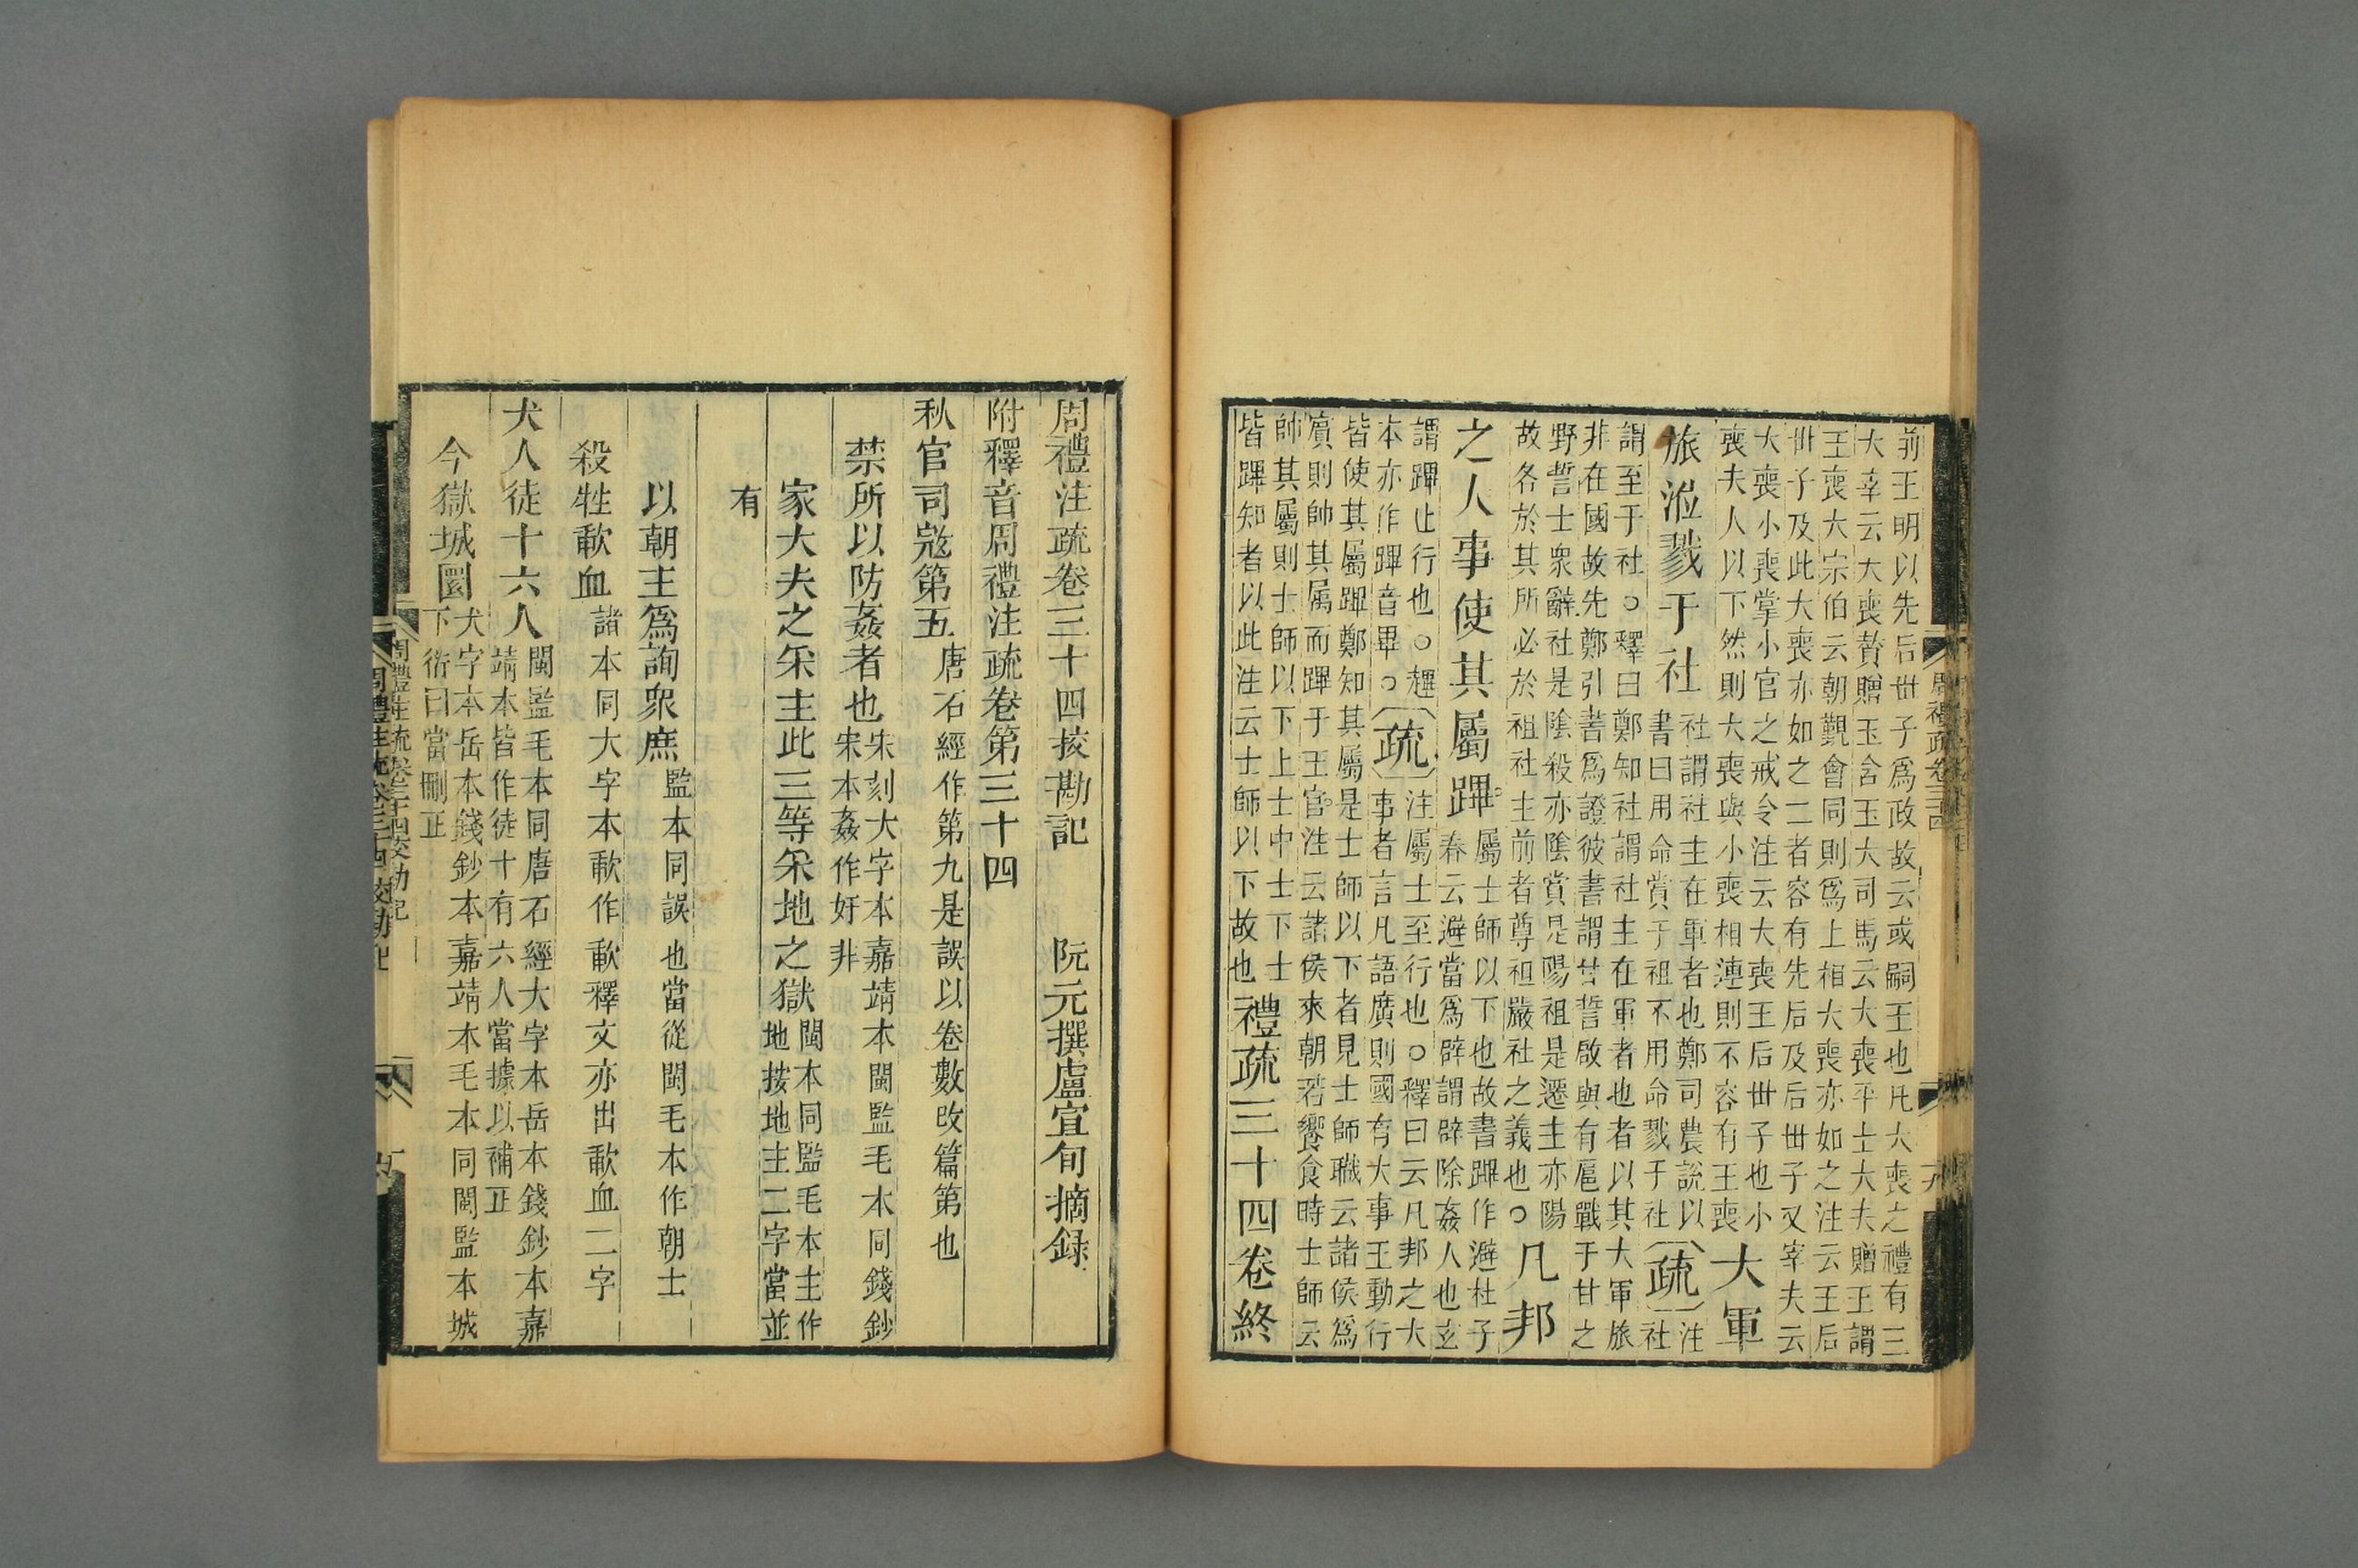 前王明以先后世子爲政故云或嗣王也凡大喪之禮有三
大宰云大喪贊贈玉含玉大司馬云大喪平士大夫贈玉謂
王喪大宗伯云朝覲會同則爲上相大喪亦如之注云王后
世子及此大喪亦如之二者容有先后及后世子又宰夫云
大喪小喪掌小官之戒令注云大喪王后世子也小
喪夫人以下然則大喪與小喪相連則不容有王喪
大軍
旅涖戮于社
社謂社主在軍者也鄭司農說以
書曰用命賞于祖不用命戮于社
〔疏〕
注
社
謂至于社○釋曰鄭知社謂社主在軍者也者以其大軍旅
非在國故先鄭引書爲證彼書謂甘誓啟與有扈戰于甘之
野誓士衆辭社是陰殺亦陰賞是陽祖是遷主亦陽
故各於其所必於祖社主前者尊祖嚴社之義也○
凡邦
之人事使其屬蹕
屬士師以下也故書蹕作避杜子
春云避當爲辟謂辟除姦人也玄
謂蹕止行也○趩
本亦作蹕音畢○
〔疏〕
注屬士至行也○釋曰云凡邦之大
事者言凡語廣則國有大事王動行
皆使其屬蹕鄭知其屬是士師以下者見士師職云諸侯爲
賔則帥其属而蹕于王官注云諸侯來朝若饗食時士師云
帥其屬則士師以下上士中士下士
皆蹕知者以此注云士師以下故也
禮疏三十四卷終
周禮疏卷三十四
周禮注疏卷三十四挍勘記 阮元撰盧宣旬摘録
附釋音周禮注疏卷第三十四
秋官司寇第五
唐石經作第九是誤以卷數改篇第也
禁所以防姦者也
宋刻大字本嘉靖本閩監毛本同錢鈔
宋本姦作奸非
家大夫之采主此三等采地之獄
閩本同監毛本主作
地按地主二字當並
有
以朝主爲詢衆庶
監本同誤也當從閩毛本作朝士
殺牲歃血
諸本同大字本歃作歃釋文亦出歃血二字
犬人徒十六人
閩監毛本同唐石經大字本岳本錢鈔本嘉
靖本皆作徒十有六人當據以補正
今獄城圜
犬字本岳本錢鈔本嘉靖本毛本同閩監本城
下衍曰當刪正
周禮注疏卷三十四校勘記